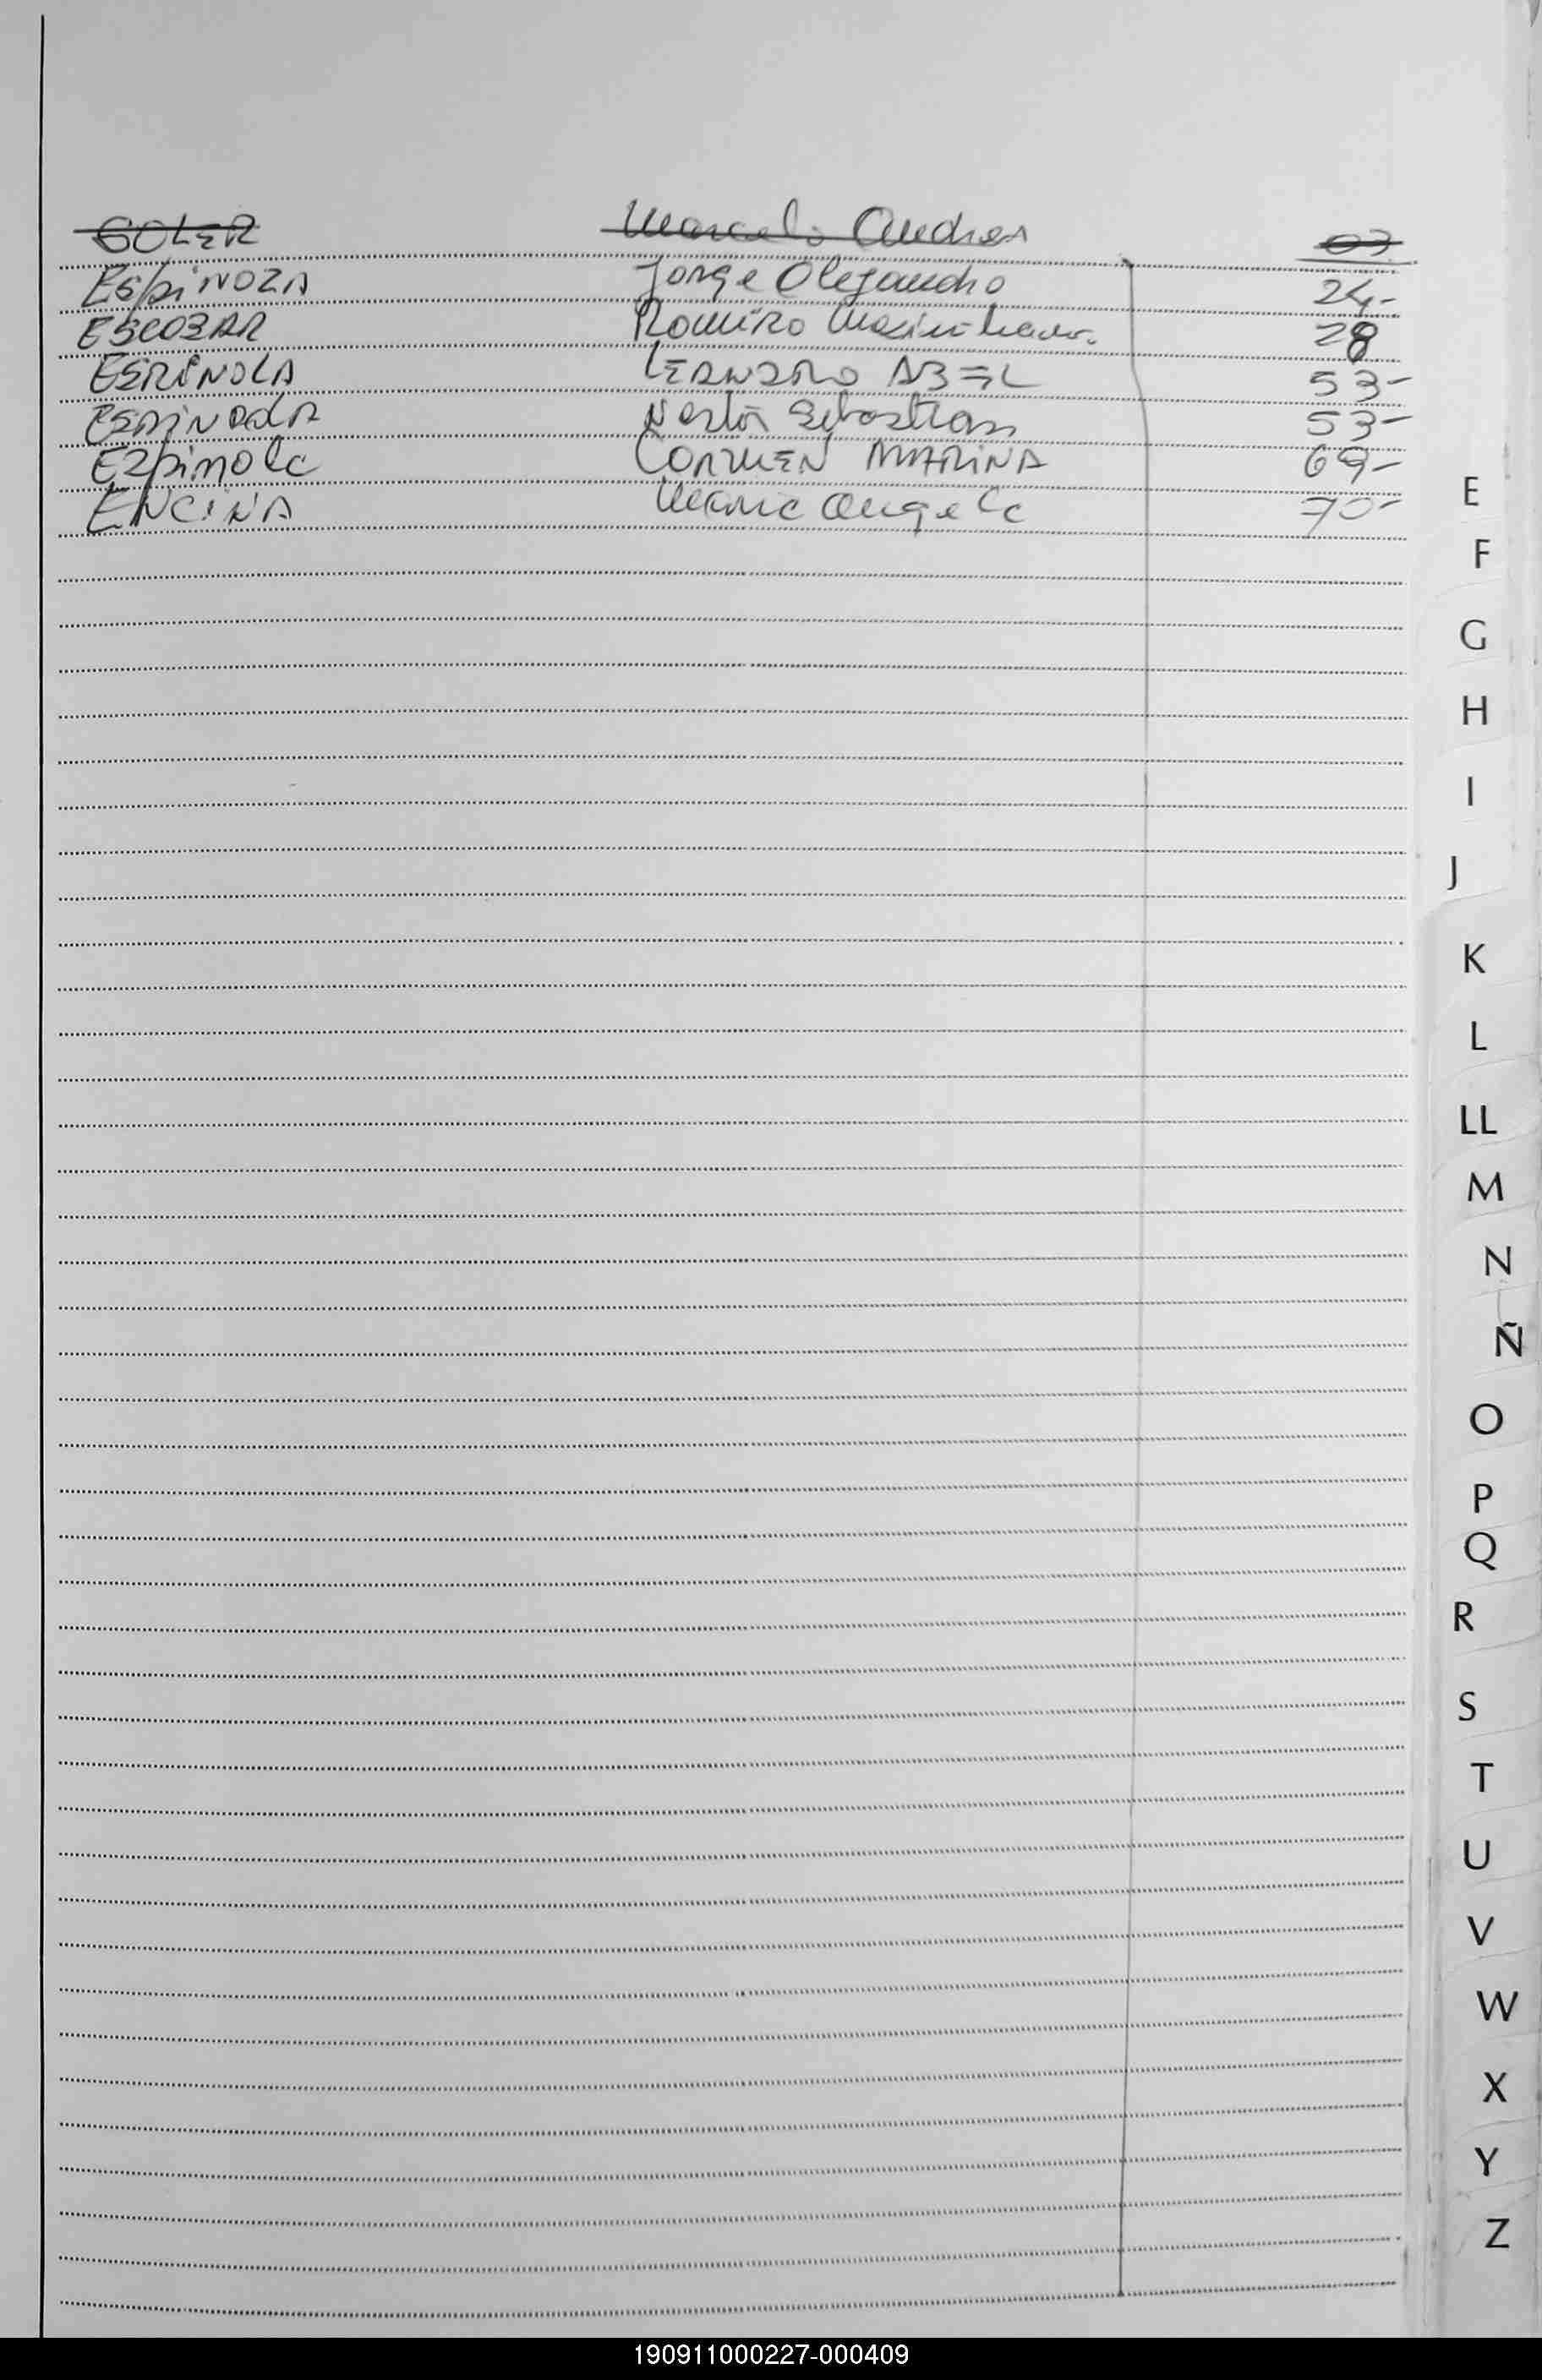 SOLER Marcelo Andres 03
Espinoza Jorge Alejandro 24-
ESCOBAR Romiro Maximiliano. 28
ESPINOLA LEANDRO ABEL 53-
ESPINDOLA Nestor Sebastian 53-
Ezpinola CARMEN MARINA 69-
ENCINA Maria Angela 70-
E
F
G
H
I
J
K
L
LL
M
N
Ñ
O
P
Q
R
S
T
U
V
W
X
Y
Z
190911000227-000409